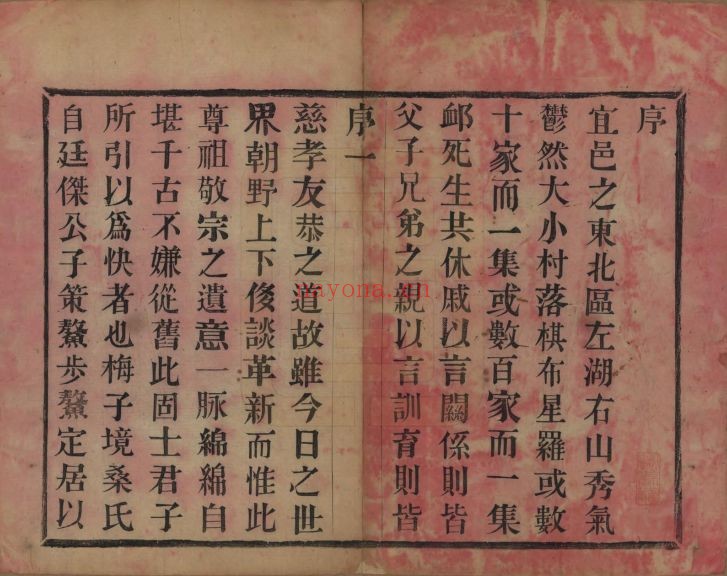 序
宜邑之東北區左湖右山秀氣
鬱然大小村落棋布星羅或數
十家而一集或數百家而一集
邮死生共休戚以言關係則皆
父子兄弟之親以言訓育則皆
序一
慈孝友恭之道故雖今日之世
界朝野上下後談革新而惟此
尊祖敬宗之遺意一脉綿綿自
堪千古不嫌從舊此固士君子
所引以爲快者也梅子境桑氏
自廷傑公子策鰲步鰲定居以